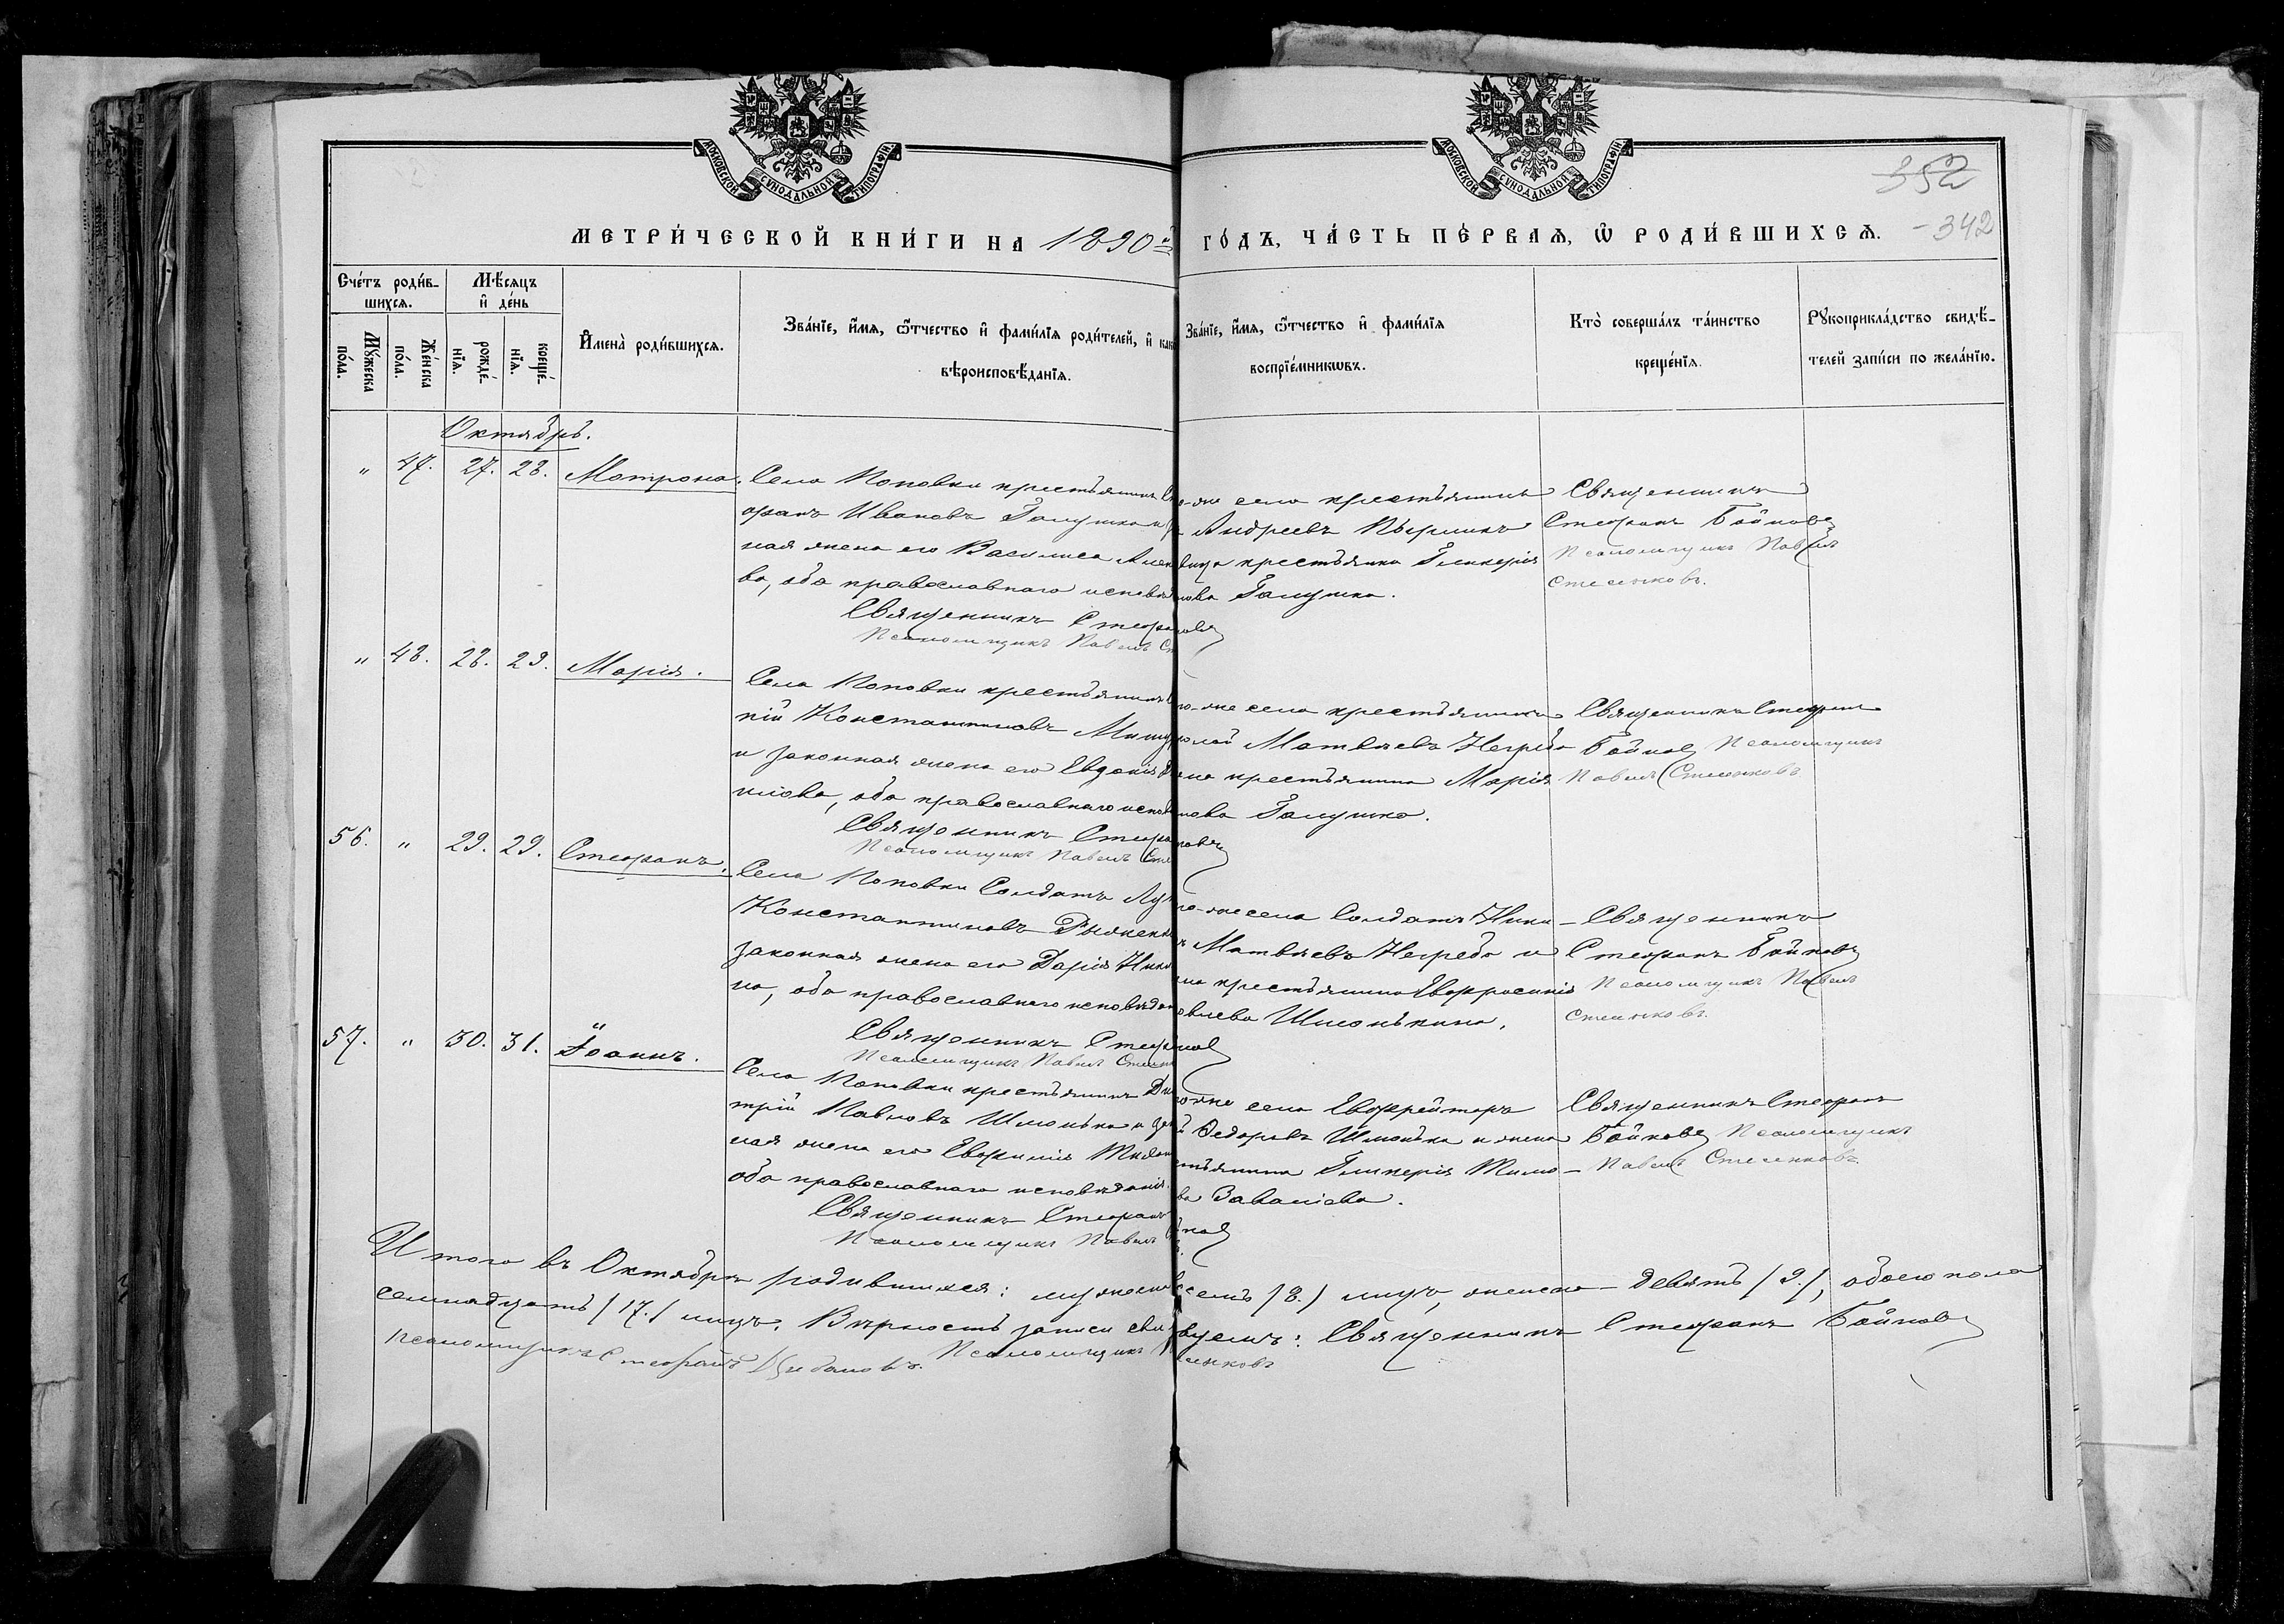 МОСКОВСКОЙ СѴНОДАЛЬНОЙ ТИПОГРАФІИ
МОСКОВСКОЙ СѴНОДАЛЬНОЙ ТИПОГРАФІИ
352
342
МЕТРИ́ЧЕСКОЙ КНИ́ГИ НА 1890й ГО́ДЪ, ЧА́СТЬ ПЕ́РВАѦ, Ѡ҆ РОДИ́ВШИХСѦ.
Сче́тъ роди́в-
шихсѧ.
Мꙋ́жеска по́ла.
Же́нска по́ла.
Мѣ́сѧцъ
и҆ де́нь
рожде́-
нїѧ.
креще́-
нїѧ.
И҆мена̀ роди́вшихсѧ.
Зва́нїе, и҆́мѧ, ѻ҆́тчество и҆ фами́лїѧ роди́телей, и҆ как
вѣроисповѣ́данїѧ.
Зва́нїе, и҆́мѧ, ѻ҆́тчество и҆ фами́лїѧ
воспрїе́мникѡвъ.
Кто̀ соверша́лъ та́инство
креще́нїѧ.
Рꙋкоприкла́дство свидѣ́-
телей за́писи по жела́нїю.
Октябрь.
" 47. 27. 28. Матрона. Села Поповки крестьянинъ Ст
ефанъ Ивановъ Галушка и
ная жена его Василиса Алек
ва, оба православнаго исповѣд
Священникъ Стефа
Псаломщикъ Павелъ Ст
о-же села крестьянинъ
Андреевъ
вица крестьянка Гликерія
нова Галушка.
Священникъ
Стефанъ Бойковъ
Псаломщикъ Павелъ
Стеенковъ.
" 48. 28. 29. Марія. Села Поповки крестьянинъ
ній Константиновъ
и законная жена его Евдокія
илова, оба православнаго исповѣ
Священникъ Стефа
Псаломщикъ Павелъ Сте
го-же села крестьянинъ
колай Матвѣевъ Негреба
жена крестьянина Марія
нова Галушка.
Священникъ Стефанъ
Бойковъ Псаломщикъ
Павелъ Стеенковъ
56. " 29. 29. Стефанъ. Села Поповки Солдатъ
Константиновъ
законная жена его Дарія Нико
на, оба православнаго исповѣдан
Священникъ Стефа
Псаломщикъ Павелъ Стеен
го-же села Солдатъ Нико-
Матвѣевъ Негреба и
жена крестьянина Евфросинія
овлева Шмонькина.
Священникъ
Стефанъ Бойковъ
Псаломщикъ Павелъ
Стеенковъ.
57. " 30. 31. Іоаннъ. Села Поповки крестьянинъ Ди
трій Павловъ Шмонька и за
ная жена его Евфимія
оба православнаго исповѣданія.
Священникъ Стефанъ
Псаломщикъ Павелъ
го-же села Ефрейторъ
Ѳедоровъ Шмонька и жена
стьянина Гликерія Тимо-
ва Завалиева.
Священникъ Стефанъ
Бойковъ Псаломщикъ
Павелъ Стеенковъ.
Итого въ Октябрѣ родившихся: мужеска восемь /8./ лицъ, женска – девять /9./, обоего пола
семнадцать /17./ лицъ. Вѣрность записи свидѣтельствуемъ: Священникъ Стефанъ Бойковъ
Псаломщикъ Стефанъ Псаломщикъ